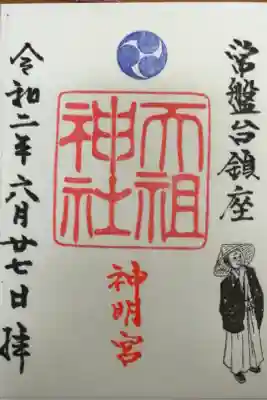 常盤台鎮座
天祖
神社
神明宮
令和二年六月廿七日拝